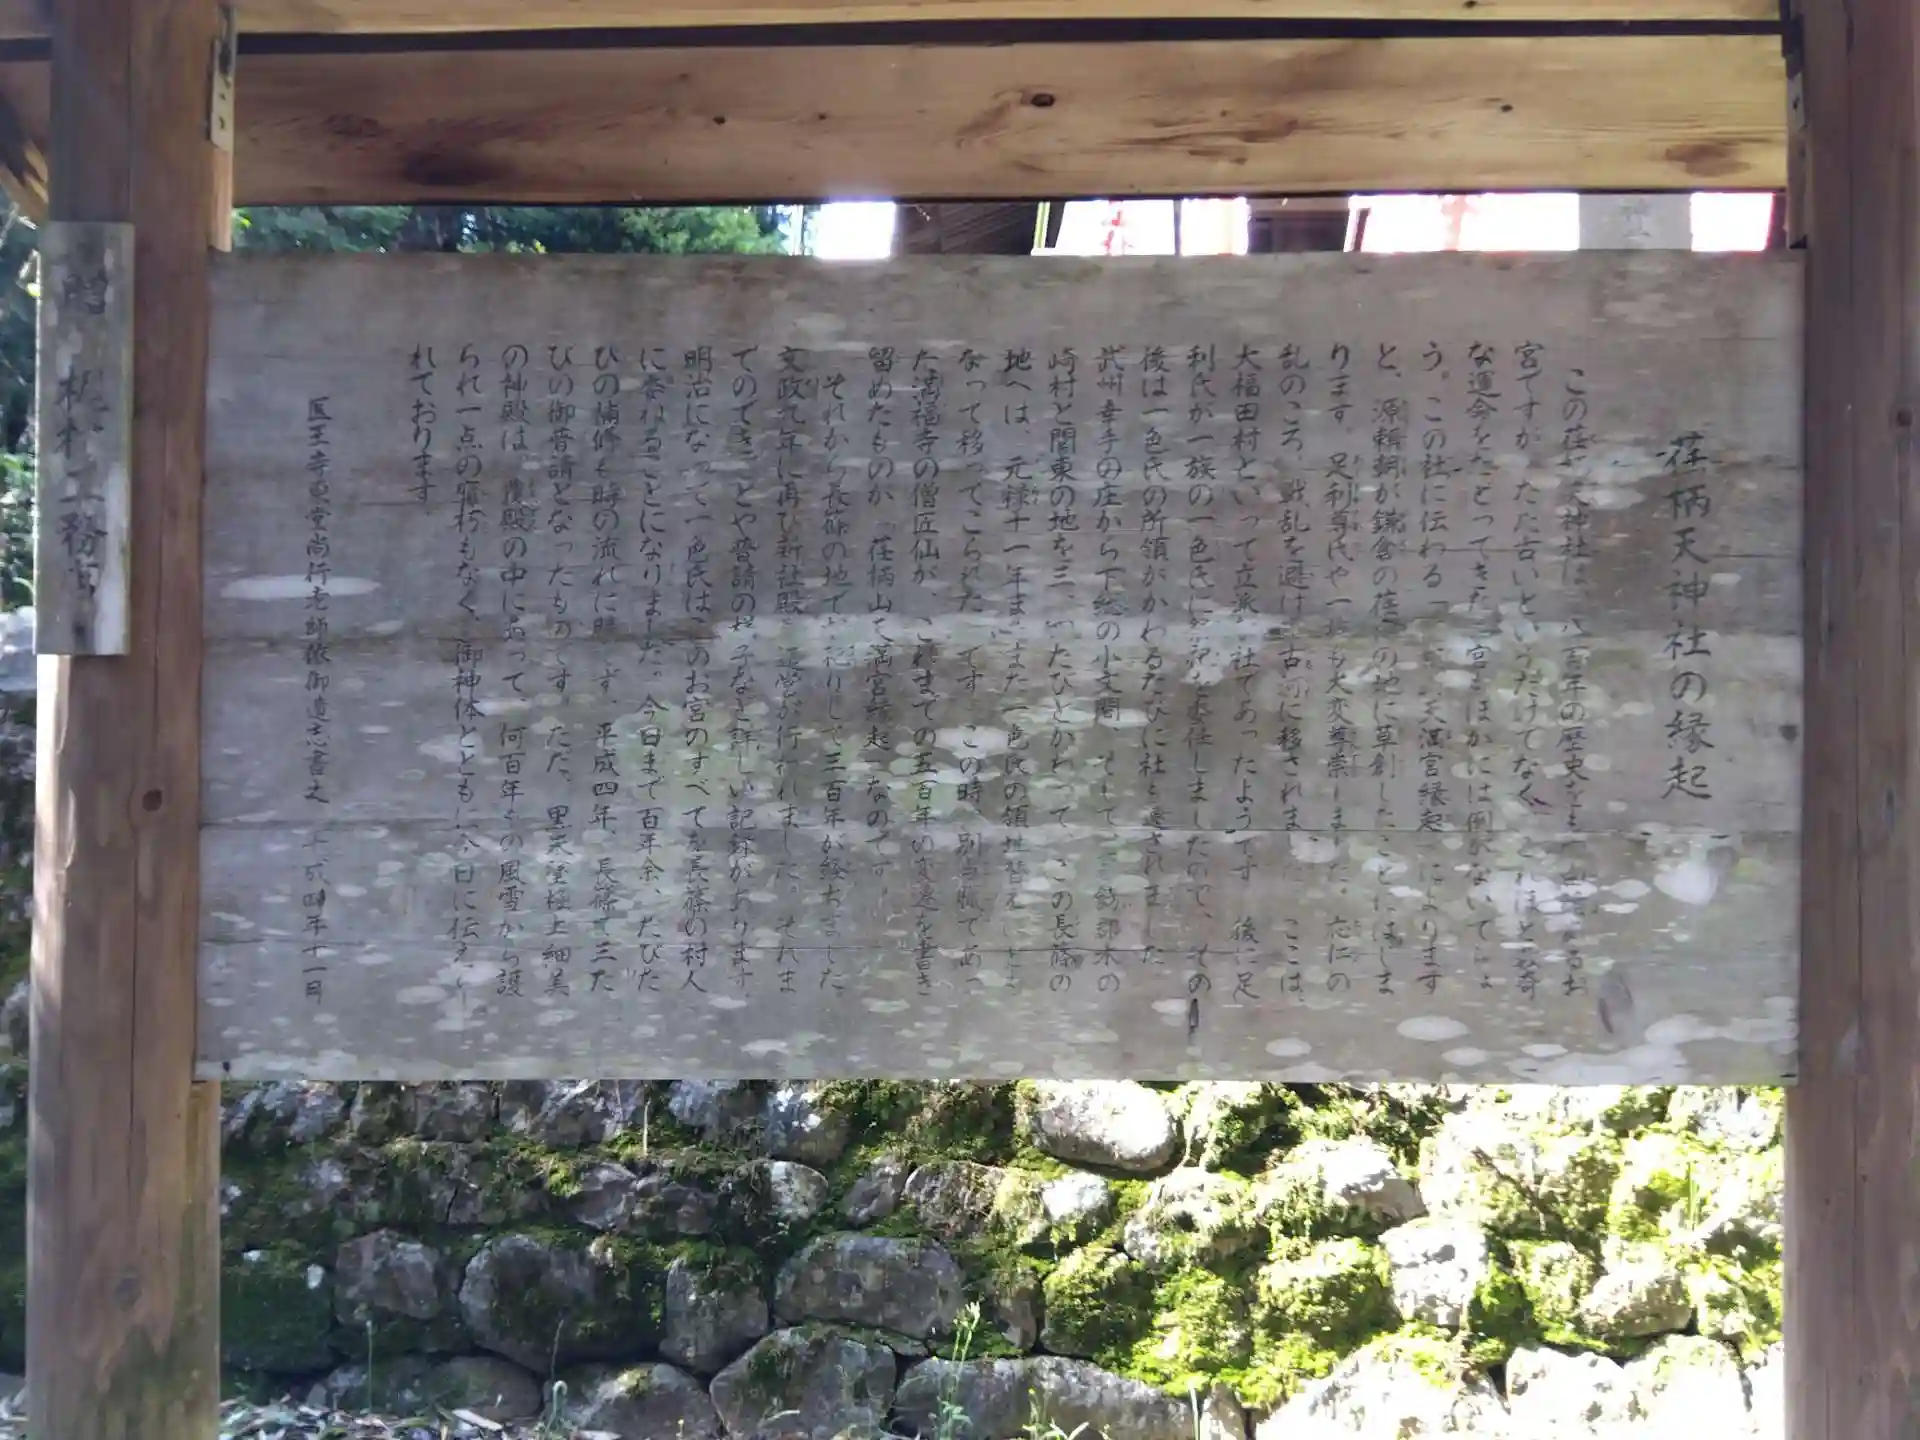 荏柄天神社の縁起
この荏柄天神社は、八百年の歴史をもつ由緒あるお
宮ですが、ただ古いというだけでなく、これほど数奇
な運命をたどってきたお宮もほかには例がないでしょ
う。この社に伝わる「天満宮縁起」によります
と、源頼朝が鎌倉の荏柄の地に草創したことにはじま
ります。足利尊氏や一族も大変尊崇しました。応仁の
乱のころ、戦乱を避けて古河に移されました。ここは、
大福田村といって立派な社であったようです。後に足
利氏が一族の一色氏に祭祀を委任しましたので、その
後は一色氏の所領がかわるたびに社も遷されました。
武州幸手の庄から下総の小文間、そして、木の
崎村と関東の地を三、四たびとかわって、この長篠の
地へは、元禄十一年またまた一色氏の領地替えによ
なって移ってこられたのです。この時、別当職であっ
た満福寺の僧匠仙が、これまでの五百年の変遷を書き
留めたものが「荏柄山天満宮縁起」なのです。
それから長篠の地でお祀りして三百年が経ちました。
文政九年に再び新社殿を造営が行われました。それま
でのできごとや普請の様子など詳しい記録があります。
明治になって一色氏はこのお宮のすべてを長篠の村人
に委ねることになりました。今日まで百年余、たびた
びの補修も時の流れに勝てず、平成四年、長篠で三た
びの御普請となったものです。ただ、黒漆塗極上細美
の神殿は、覆殿の中にあって、何百年もの風雪から護
られ一点の腐朽もなく、御神体とともに今日に伝えら
れております。
医王寺東堂尚行老師依御遺志書之 平成四年十一月
贈 梶村工務店